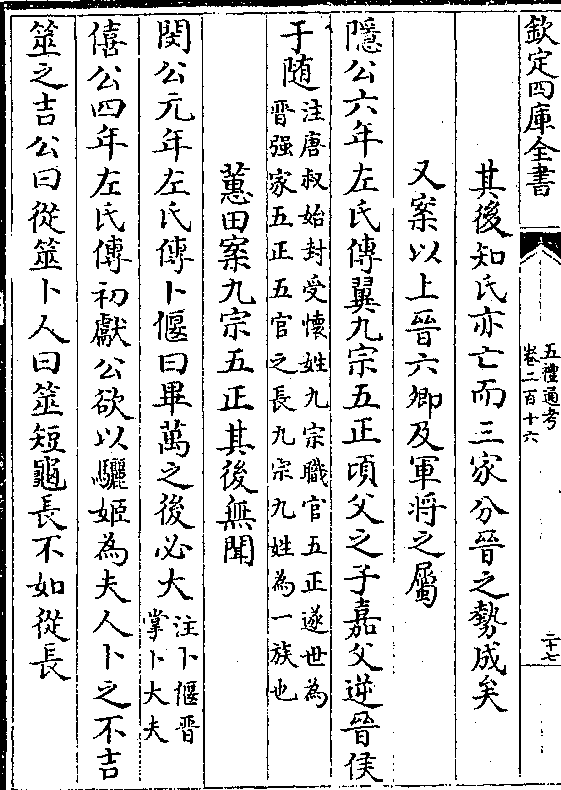 欽定四庫全書
五禮通考
卷二百十六
二十七
其後知氏亦亡而三家分晉之勢成矣
又案以上晉六卿及軍將之屬
隱公六年左氏傳翼九宗五正頃父之子嘉父逆晉侯
于隨注唐叔始封受懷姓九宗職官五正遂世為
晉强家五正五官之長九宗九姓為一族也
蕙田案九宗五正其後無聞
閔公元年左氏傳卜偃曰畢萬之後必大注卜偃晉
掌卜大夫
僖公四年左氏傳初獻公欲以驪姬為夫人卜之不吉
筮之吉公曰從筮卜人曰筮短龜長不如從長